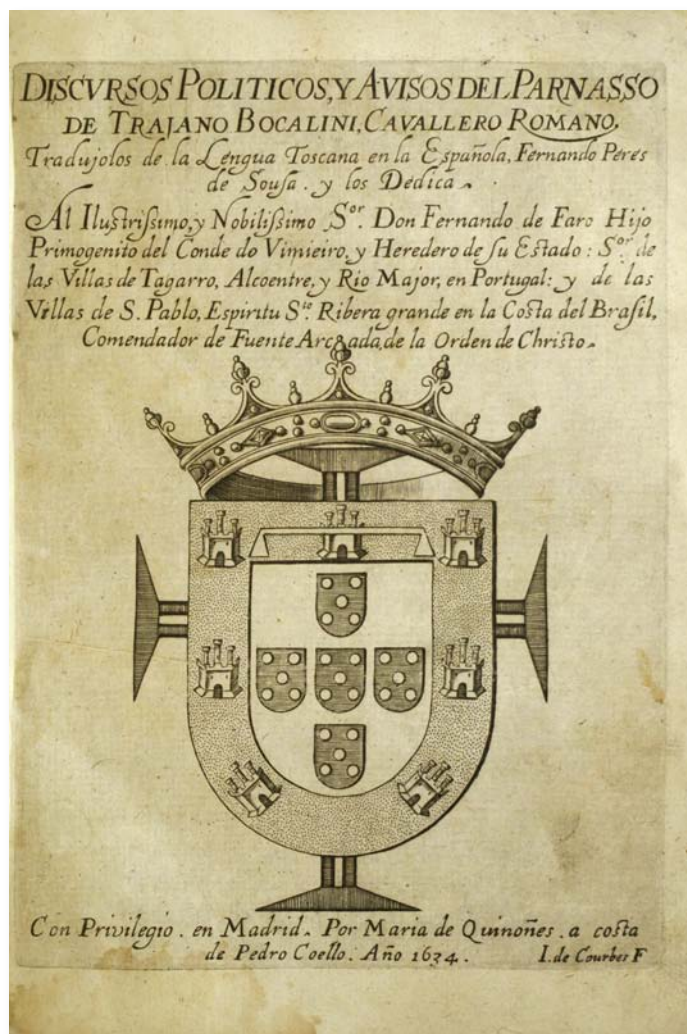 DISCVRSOS POLITICOS, Y AVISOS DEL PARNASSO
DE TRAJANO BOCALINI, CAVALLERO ROMANO.
Tradujolos de la Lengua Toscana en la Española, Fernando Peres
de Sousa. y los Dedica.
Al Ilustrissimo, y Nobilissimo Sor. Don Fernando de Faro Hijo
Primogenito del Conde do Vimieiro, y Heredero de su Estado: Sor. de
las Villas de Tagarro, Alcoentre, y Rio Major, en Portugal: y de las
Villas de S. Pablo, Espiritu Sto. Ribera grande en la Costa del Brasil,
Comendador de Fuente Arcada, de la Orden de Christo.
Con Privilegio. en Madrid. Por Maria de Quinoñes. a costa
de Pedro Coello. Año 1634. I. de Courbes F